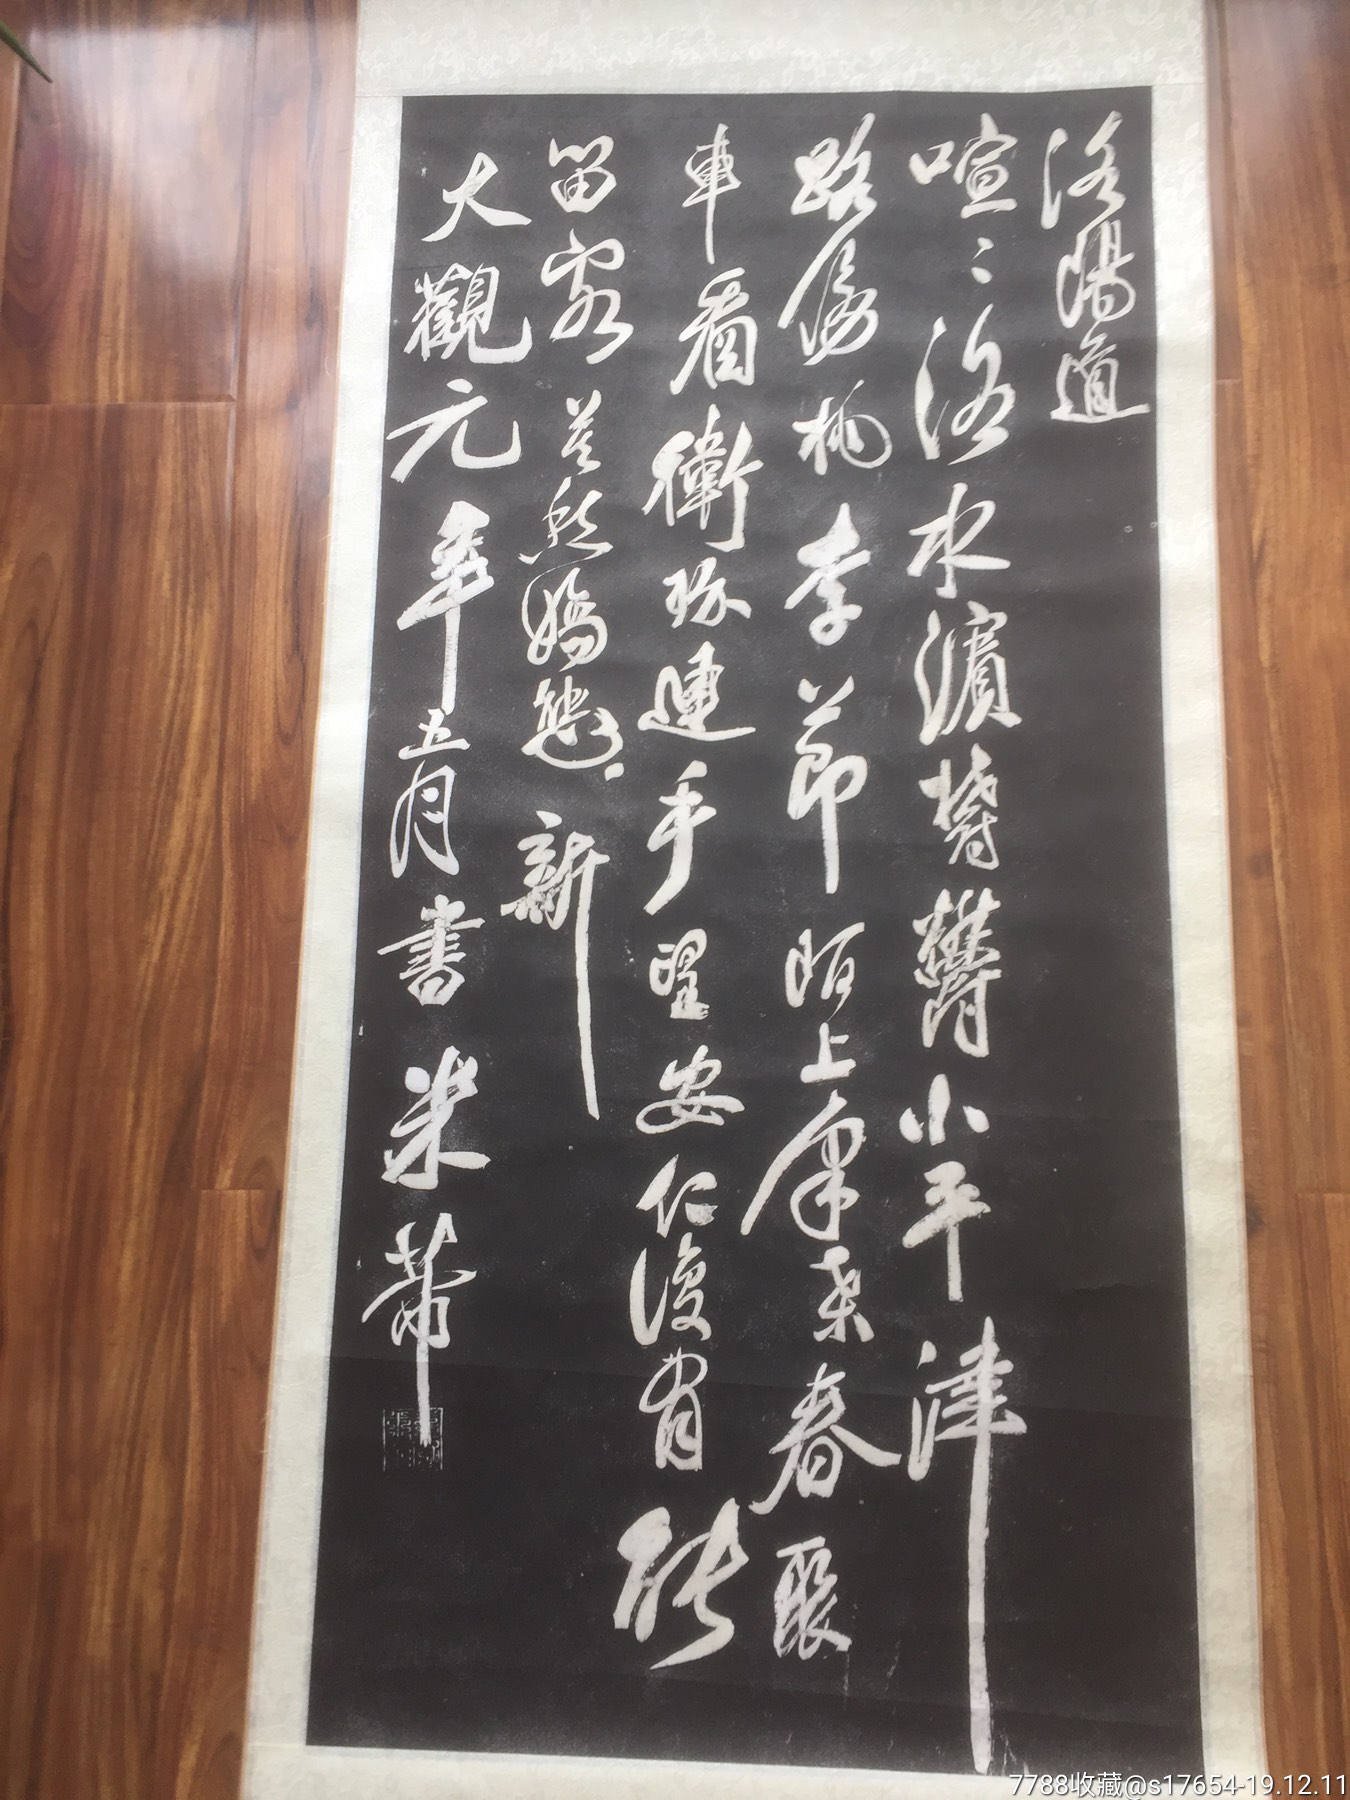 洛陽道
喧〻洛水濱鬱鬱小平津
路傍桃李節陌上采桑春聚
車看衛玠連手望安仁復有能
留客莫愁嬌態新
大觀元年五月書米芾
7788收藏@s17654-19.12.11